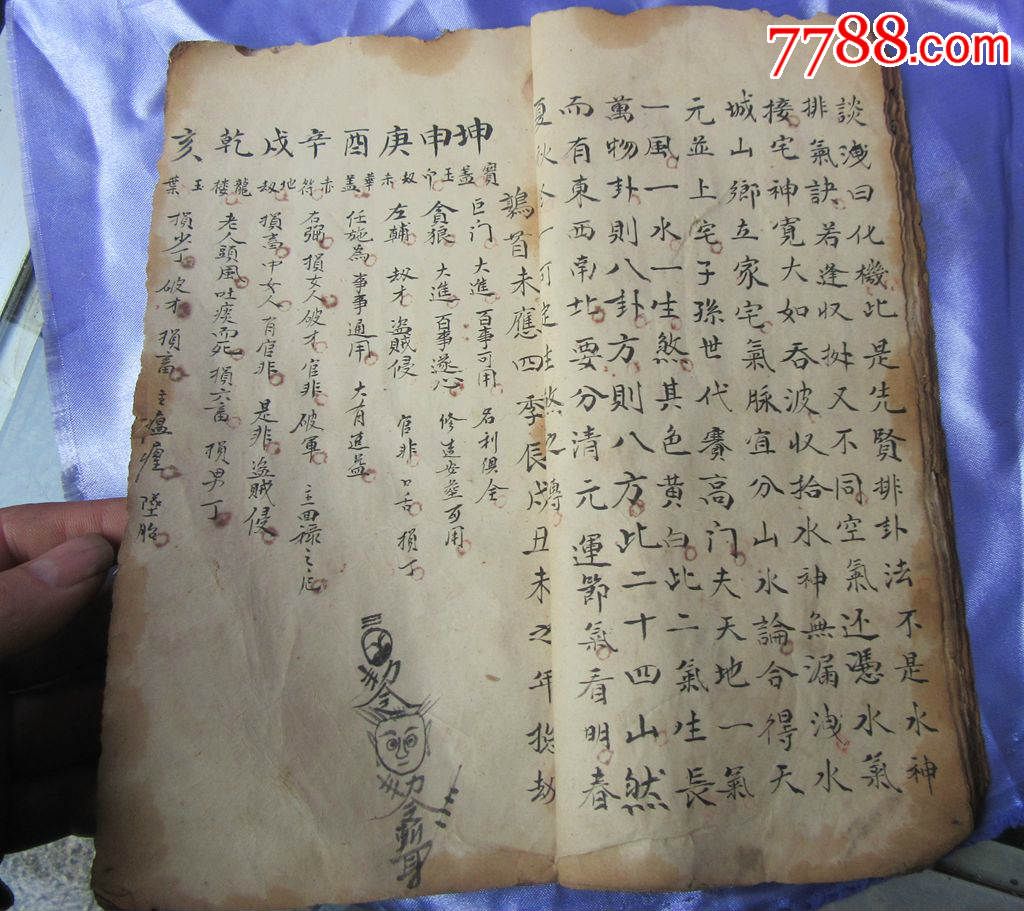 7788.com
談洩曰化機此是先賢排卦法不是水神
排氣訣若逢收又不同空氣还憑水氣
接宅神寛大如吞波收拾水神無漏洩水
城山鄉立家宅氣脈宜分山水論合得天
元並上宅子孫世代賽高门夫天地一氣
一風一水一生煞其色黃白比二氣生長
萬物卦則八卦方則八方此二十四山然
而有東西南北要分清元運節氣看明春
夏秋冬一可定生煞之
首未應四季辰戌丑未之年劫
坤申庚酉辛戌乾亥
寳盖 巨门 大進 百事可用 名利俱全
玉印 貪狼 大進 百事遂心 修造安塟可用
劫赤 左輔 劫才 盜賊侵 官非 口舌 損丁
華盖 任施為 事事通用 大有進益
赤符 右弼 損女人破才 官非 破軍 主回祿之厄
地劫 損畜中女人有官非 是非 盗賊侵
龍楼 老人頭風吐痰而死 損六畜 損男丁
玉葉 損少丁 破才 損畜 主瘟 墜胎